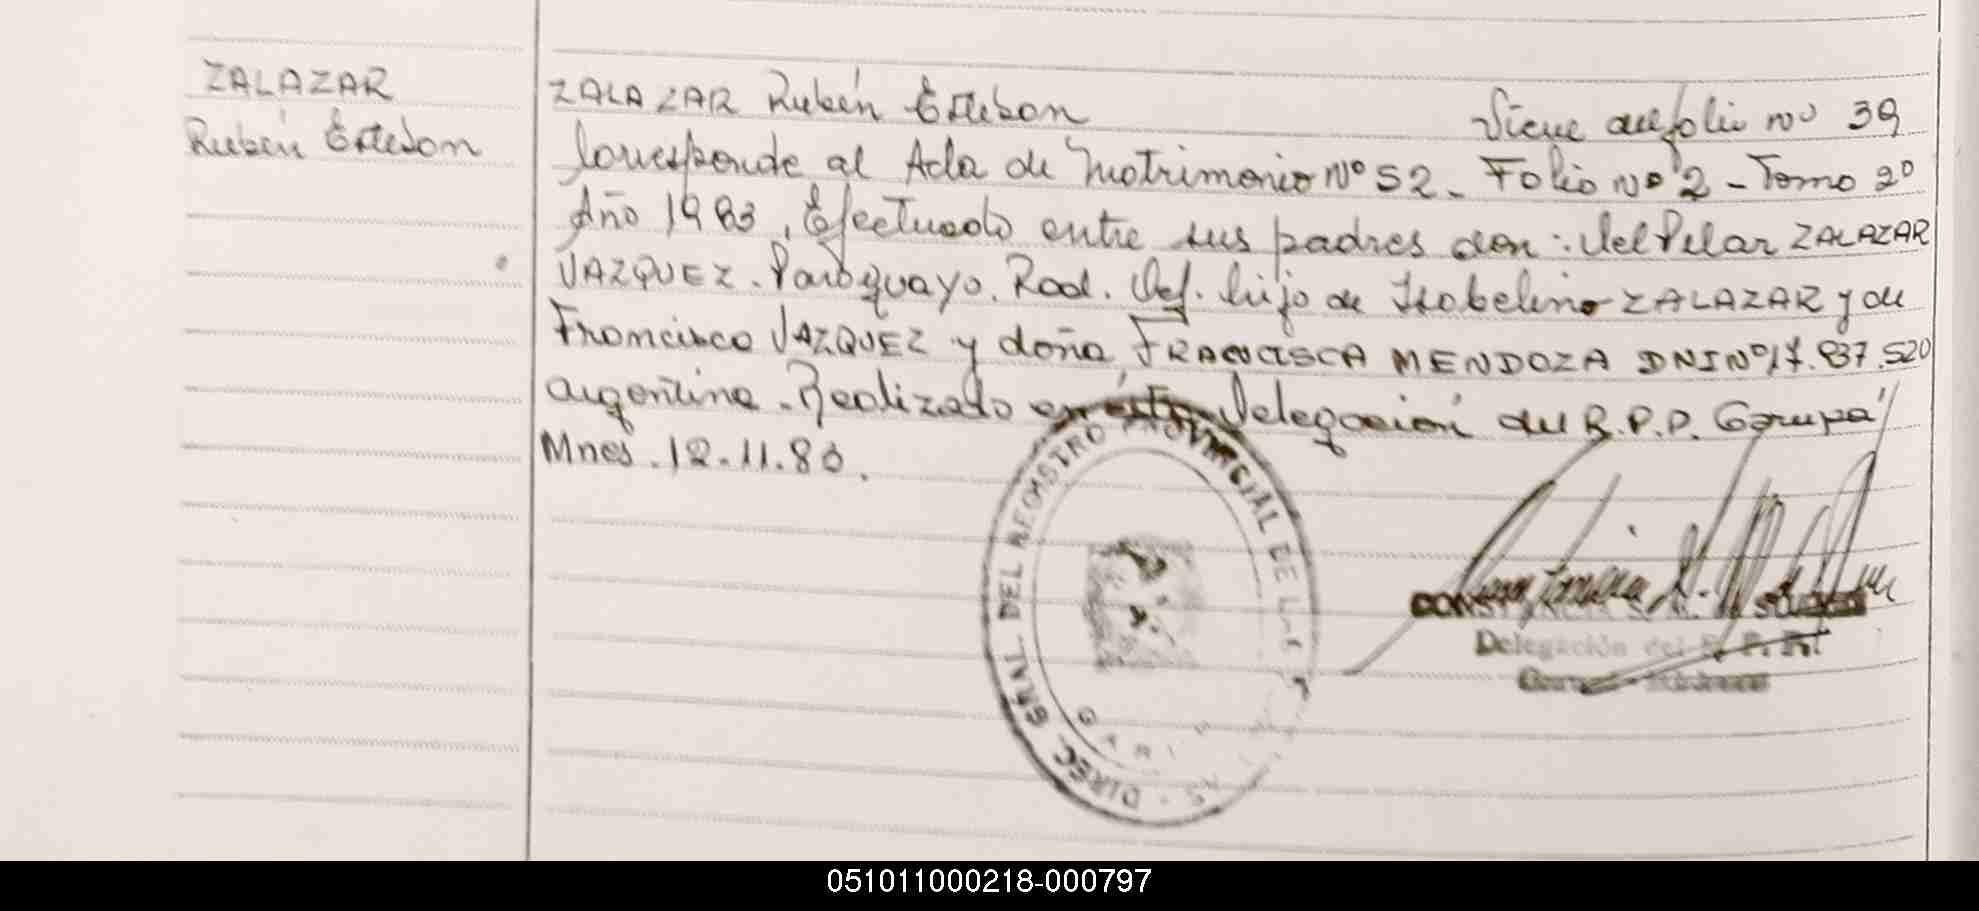 ZALAZAR
Rubén Esteban
ZALAZAR Rubén Esteban Viene del folio nº 39
Corresponde al Acta de Matrimonio Nº 52 - Folio Nº 2 - Tomo 2º
Año 1983, Efectuado entre sus padres don: Del Pilar ZALAZAR
VAZQUEZ. Paraguayo. Rad. Def. hijo de ZALAZAR y de
Francisca VAZQUEZ y doña FRANCISCA MENDOZA DNI Nº 17.837.520
argentina. Realizado en ésta Delegación del R.P.P. Garupá
Mnes. 12.11.83.
DIREC. GRAL. DEL REGISTRO PROVINCIAL DE L
Delegación del R. P. P.
051011000218-000797